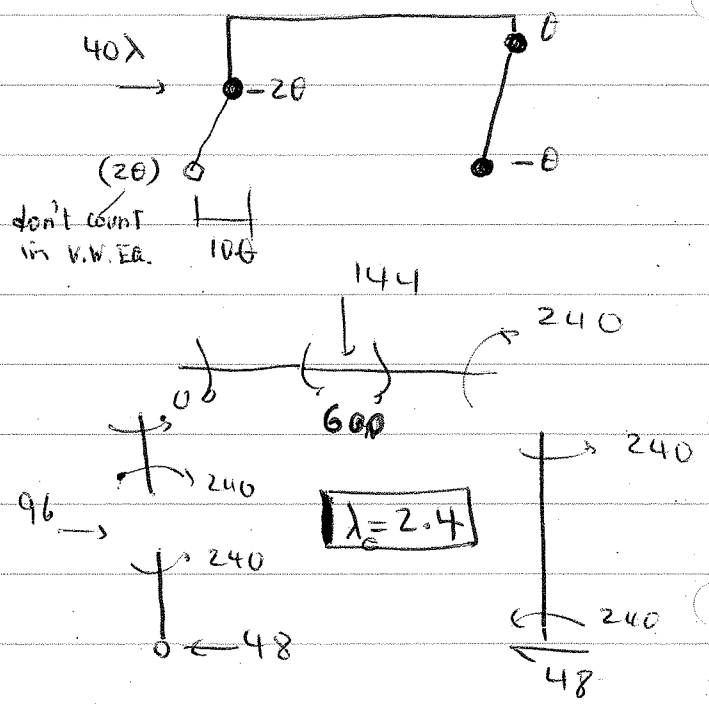 θ
40λ
→ -2θ
(2θ) -θ
don't count
in V.W. EQ.
10θ
144
240
0
600
240
240
96 →
λc = 2.4
240
240
← 48
48